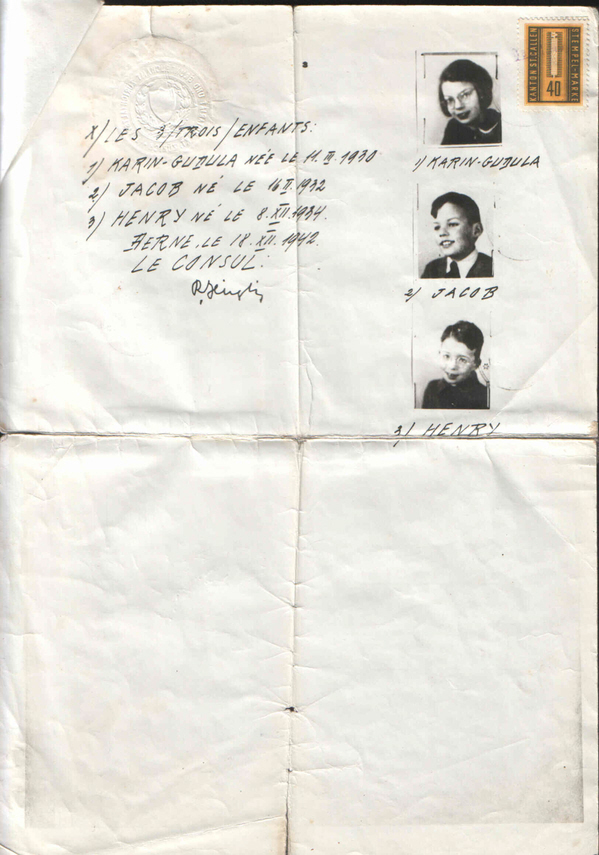 X/ LES 3/TROIS/ENFANTS:
1) KARIN-GUDULA NÉE LE 11. III. 1930
2) JACOB NÉ LE 16 II. 1932
3) HENRY NÉ LE 8. XII. 1934.
BERNE, LE 18. XII. 1942.
LE CONSUL:
KANTON ST. GALLEN
STEMPEL-MARKE
40
1) KARIN-GUDULA
2) JACOB
3) HENRY